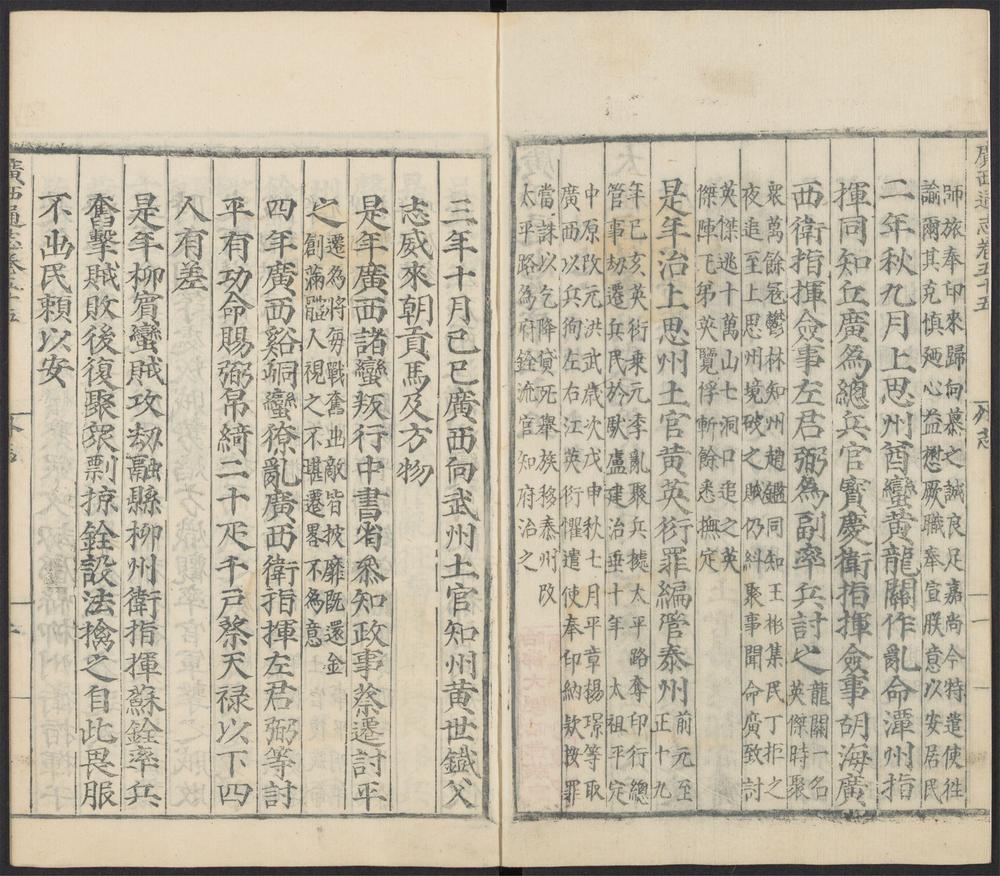 廣西通志卷五十五
師旅奉印來歸向慕之誠良足嘉尚今特遣使往
諭爾其克慎廼心益懋厥職奉宣朕意以安居民
二年秋九月上思州酋蠻黃龍關作亂命潭州指
揮同知丘廣為總兵官寶慶衛指揮僉事胡海廣
西衛指揮僉事左君弼為副率兵討之
龍關一名
英傑時聚
衆萬餘冦鬱林知州趙鑑同知王彬集民丁拒之
夜追至上思州境破之賊仍糾聚事聞命廣致討
英傑逃十萬山七洞口追之英
傑陣亡弟英覽俘斬餘悉撫定
是年治上思州土官黃英衍罪編管泰州
前元至
正十九
年巳亥英衍乗元季亂聚兵㨿太平路奪印行總
管事刼遷兵民於䭾盧建治垂十年太祖平定
中原改元洪武歲次戊申秋七月平章楊璟等取
廣西以兵徇左右江英衍懼遣使奉印納欵按罪
當誅以乞降貸死舉族移泰州改
太平路為府銓流官知府治之
三年十月己巳廣西向武州土官知州黄世鐵父
志威來朝貢馬及方物
是年廣西諸蠻叛行中書省叅知政事蔡遷討平
之
遷為將每戰奮出敵皆披靡既還金
創滿軀人視之不堪遷畧不為意
四年廣西谿峒蠻獠亂廣西衛指揮左君弼等討
平有功命賜弼帛綺二十疋千戶蔡天禄以下四
人有差
是年柳賔蠻賊攻刼融縣柳州衛指揮蘇銓率兵
奮擊賊敗後復聚衆剽掠銓設法擒之自此畏服
不出民賴以安
廣西通志卷五十五